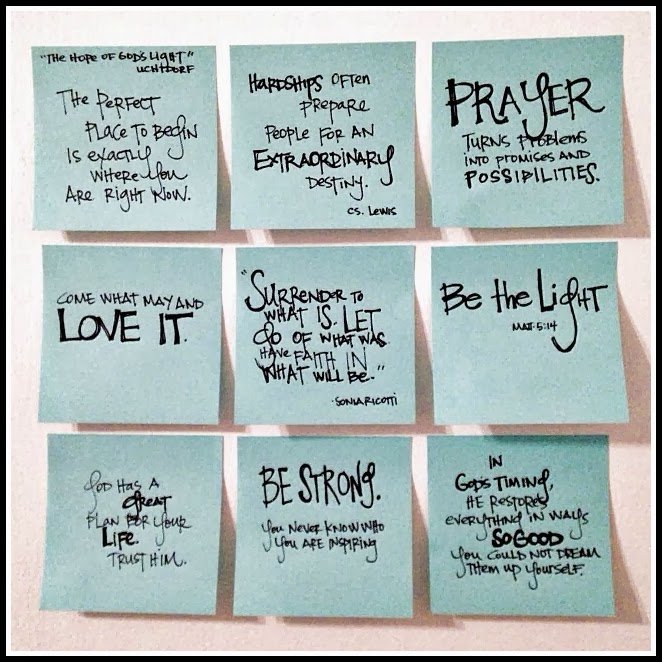 "THE HOPE OF GOD'S LIGHT"
UCHTDORF
THE PERFECT
PLACE TO BEGIN
IS EXACTLY
WHERE YOU
ARE RIGHT NOW.
HARDSHIPS OFTEN
PREPARE
PEOPLE FOR AN
EXTRAORDINARY
DESTINY.
CS. LEWIS
PRAYER
TURNS PROBLEMS
INTO PROMISES AND
POSSIBILITIES.
COME WHAT MAY AND
LOVE IT.
"SURRENDER TO
WHAT IS. LET
GO OF WHAT WAS.
HAVE FAITH IN
WHAT WILL BE."
-SONIA RICOTTI
Be the LIGHT
MATT. 5:14
GOD HAS A
GREAT
PLAN FOR YOUR
LIFE.
TRUST HIM.
BE STRONG.
YOU NEVER KNOW WHO
YOU ARE INSPIRING
IN
GOD'S TIMING,
HE RESTORES
EVERYTHING IN WAYS
SO GOOD
YOU COULD NOT DREAM
THEM UP YOURSELF.